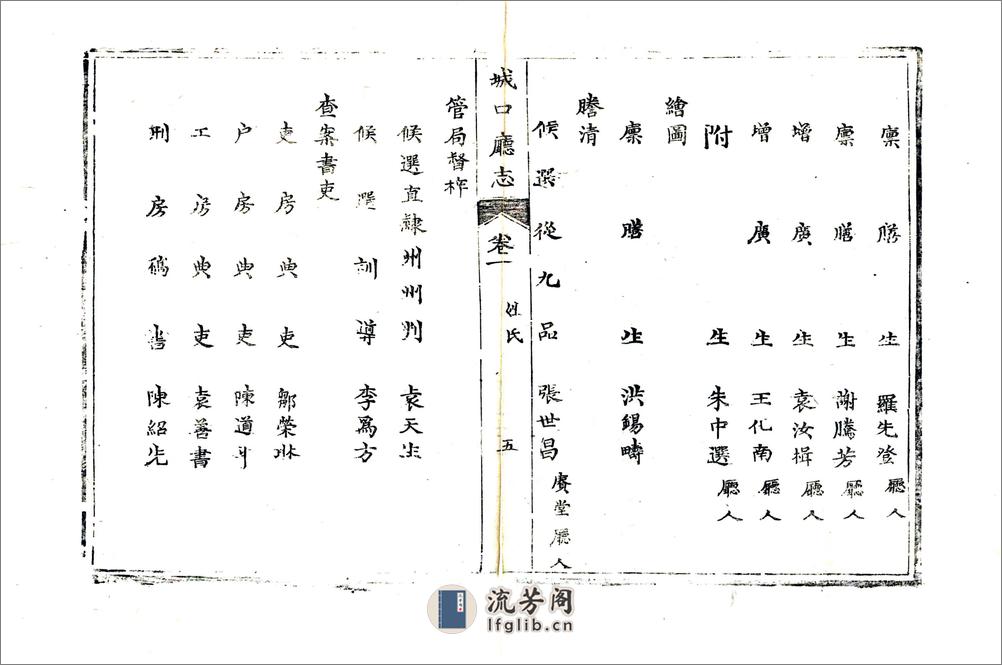 廩膳生羅先登廳人
廩膳生謝騰芳廳人
增廣生袁汝揖廳人
增廣生王化南廳人
附生朱中選廳人
繪圖
廩膳生洪錫疇
謄清
候選從九品張世昌賡堂廳人
城口廳志 卷一 姓氏 五
管局督梓
候選直隸州州判袁天生
候選訓導李爲方
查案書吏
吏房典吏鄒榮
户房典吏陳道
工房典吏袁善書
刑房稿書陳紹先
流芳阁
lfglib.cn